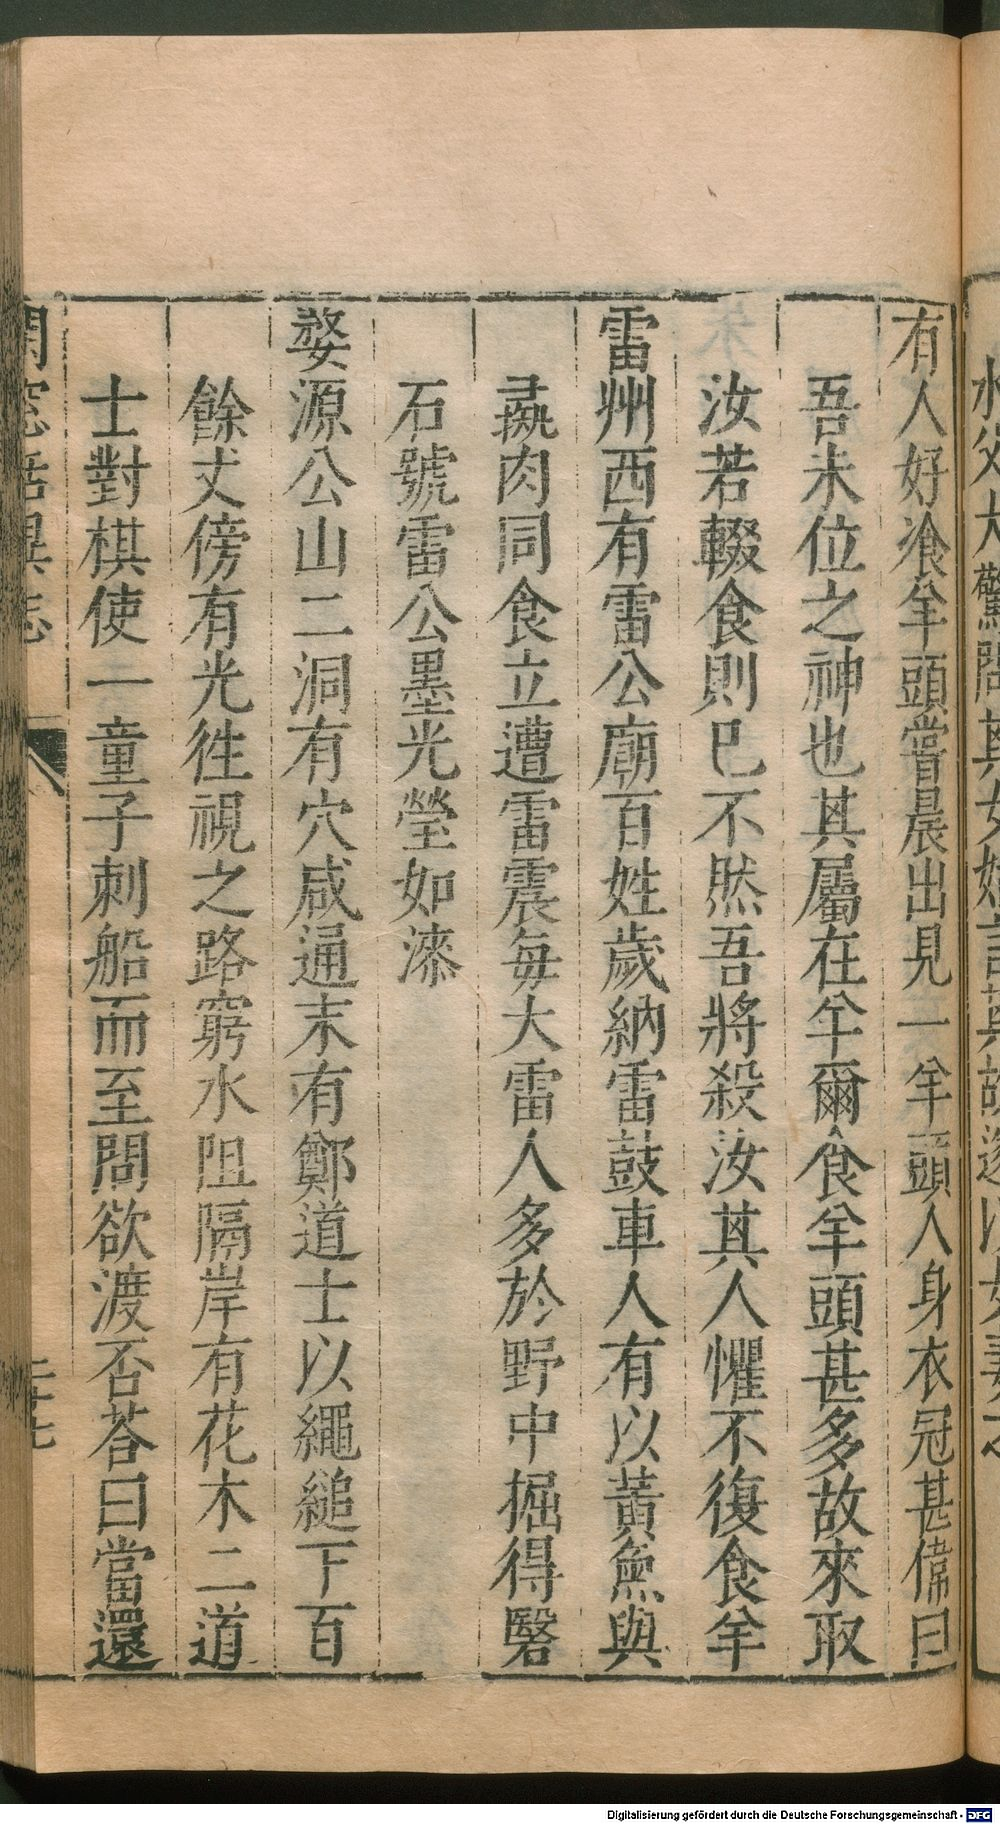 有人好飡羊頭嘗晨出見一羊頭人身衣冠甚偉曰
吾未位之神也其屬在羊爾食羊頭甚多故來取
汝若輟食則巳不然吾將殺汝其人懼不復食羊
雷州西有雷公廟百姓歲納雷鼓車人有以黃魚與
彘肉同食立遭雷震每大雷人多於野中掘得䃜
石號雷公墨光瑩如漆
婺源公山二洞有穴咸通末有鄭道士以繩縋下百
餘丈傍有光徃視之路窮水阻隔岸有花木二道
士對棋使一童子刺船而至問欲渡否荅曰當還
二十七
Digitalisierung gefördert durch die Deutsche Forschungsgemeinschaft - DFG